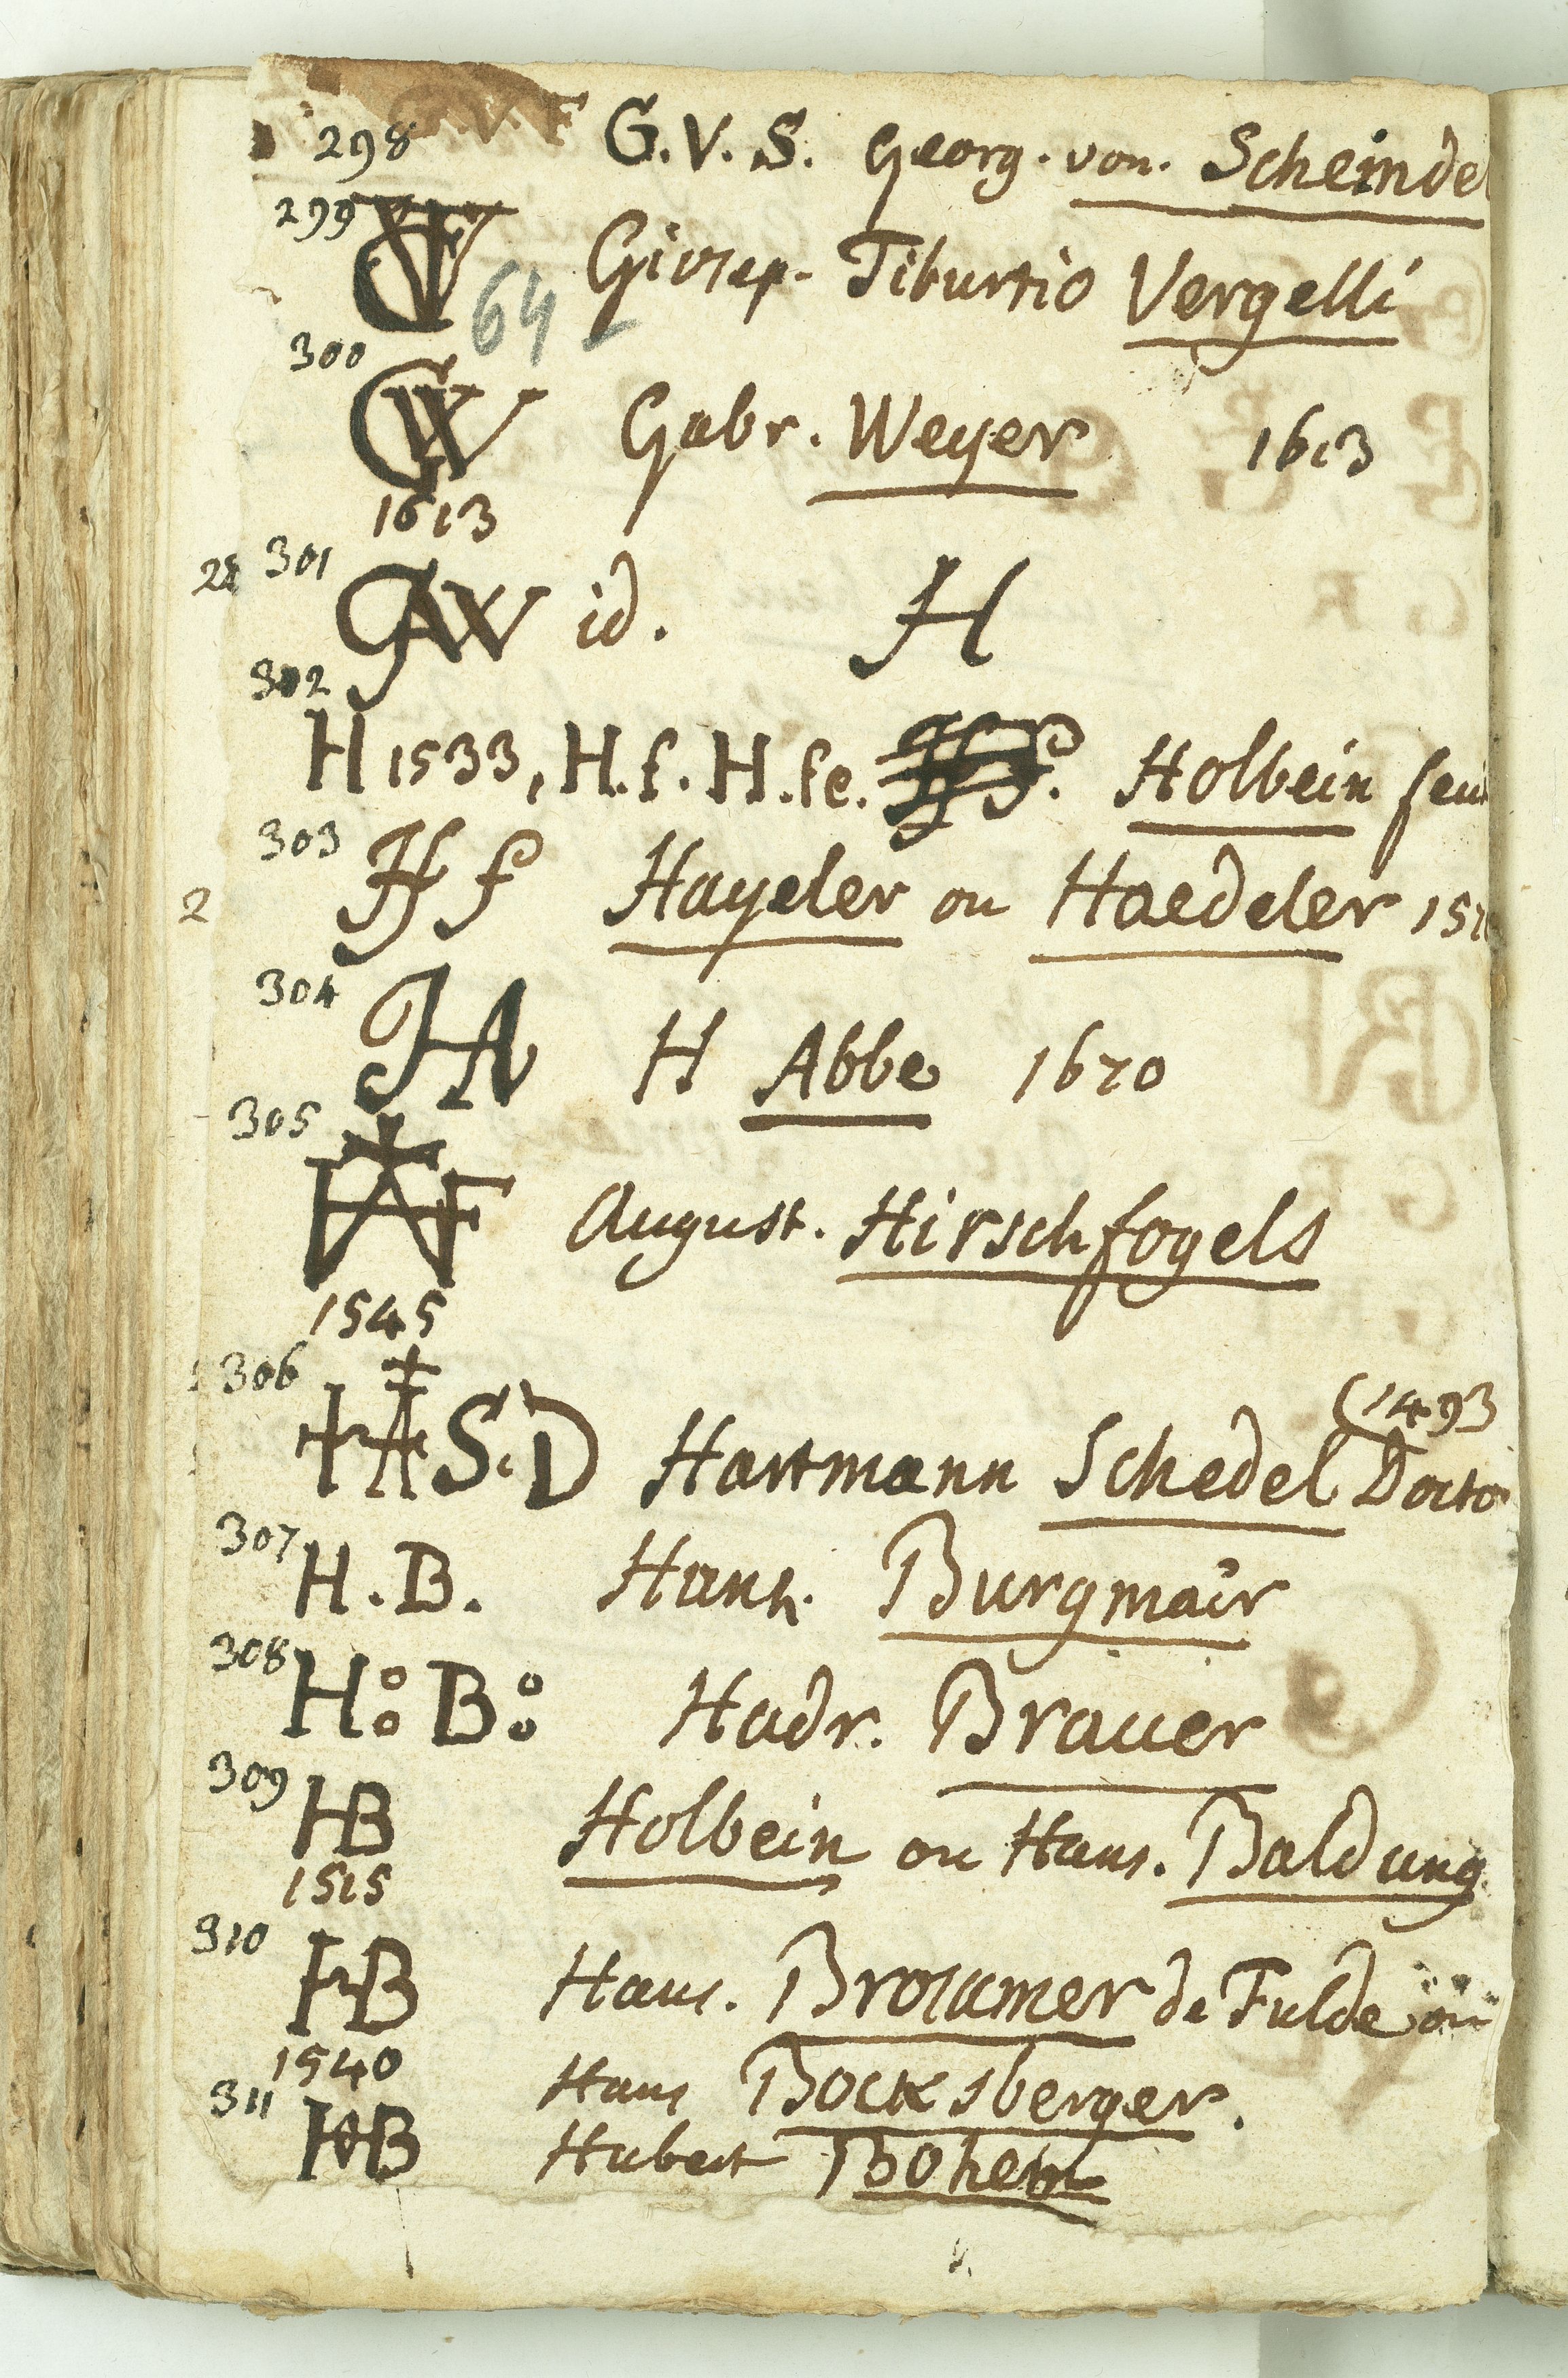 298 G.V.S. Georg. von. Scheindel
299 GTV Giusep. Tiburtio Vergelli
64
300 GW Gabr. Weyer 1613
1613
301 GAW id. H
302
H 1533, H.f. H.fe. Holbein
303 Hf Hayeler ou Haedeler
2
304 HA H Abbe 1670
305 HAF August. Hirschfogels
1545
306 HA S.D Hartmann Schedel Doctor (1493
307 H.B. Hans. Burgmair
308 H: B: Hadr. Brauer
309 HB Holbein ou Hans. Baldung.
1515
310 HB Hans. Brosamer de Fulde ou
1540 Hans Bocksberger.
311 HB Hubert